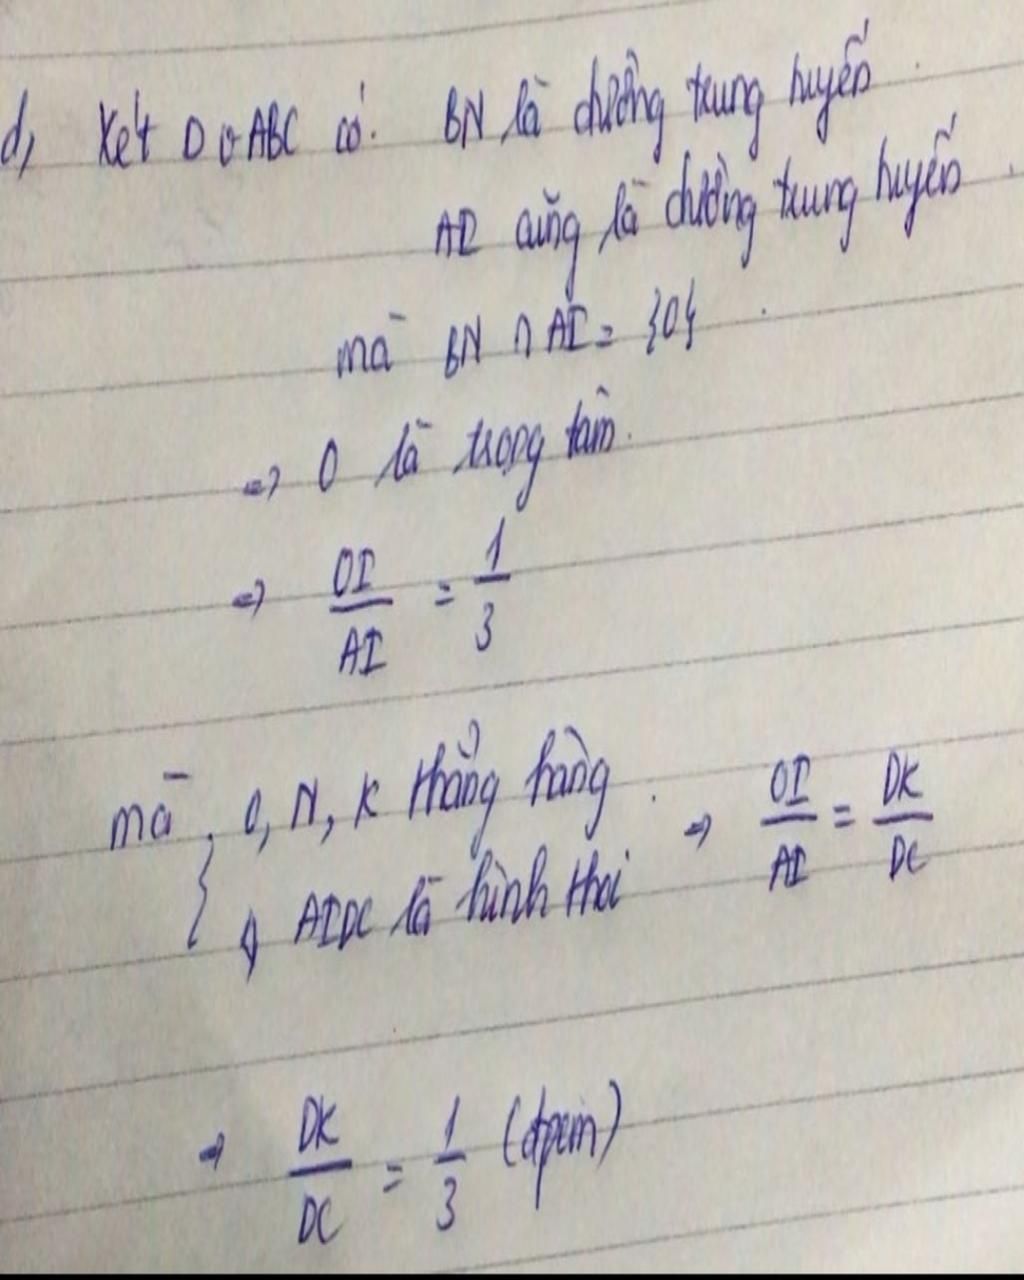 d, Xét Δ v ABC có: BN là đường trung tuyến
AI cũng là đường trung tuyến
mà BN ∩ AI = {O}
=> O là trọng tâm.
=> OI/AI = 1/3
mà { O, N, K thẳng hàng => OI/AI = DK/DC
◊ AIDC là hình thoi
=> DK/DC = 1/3 (đpcm)